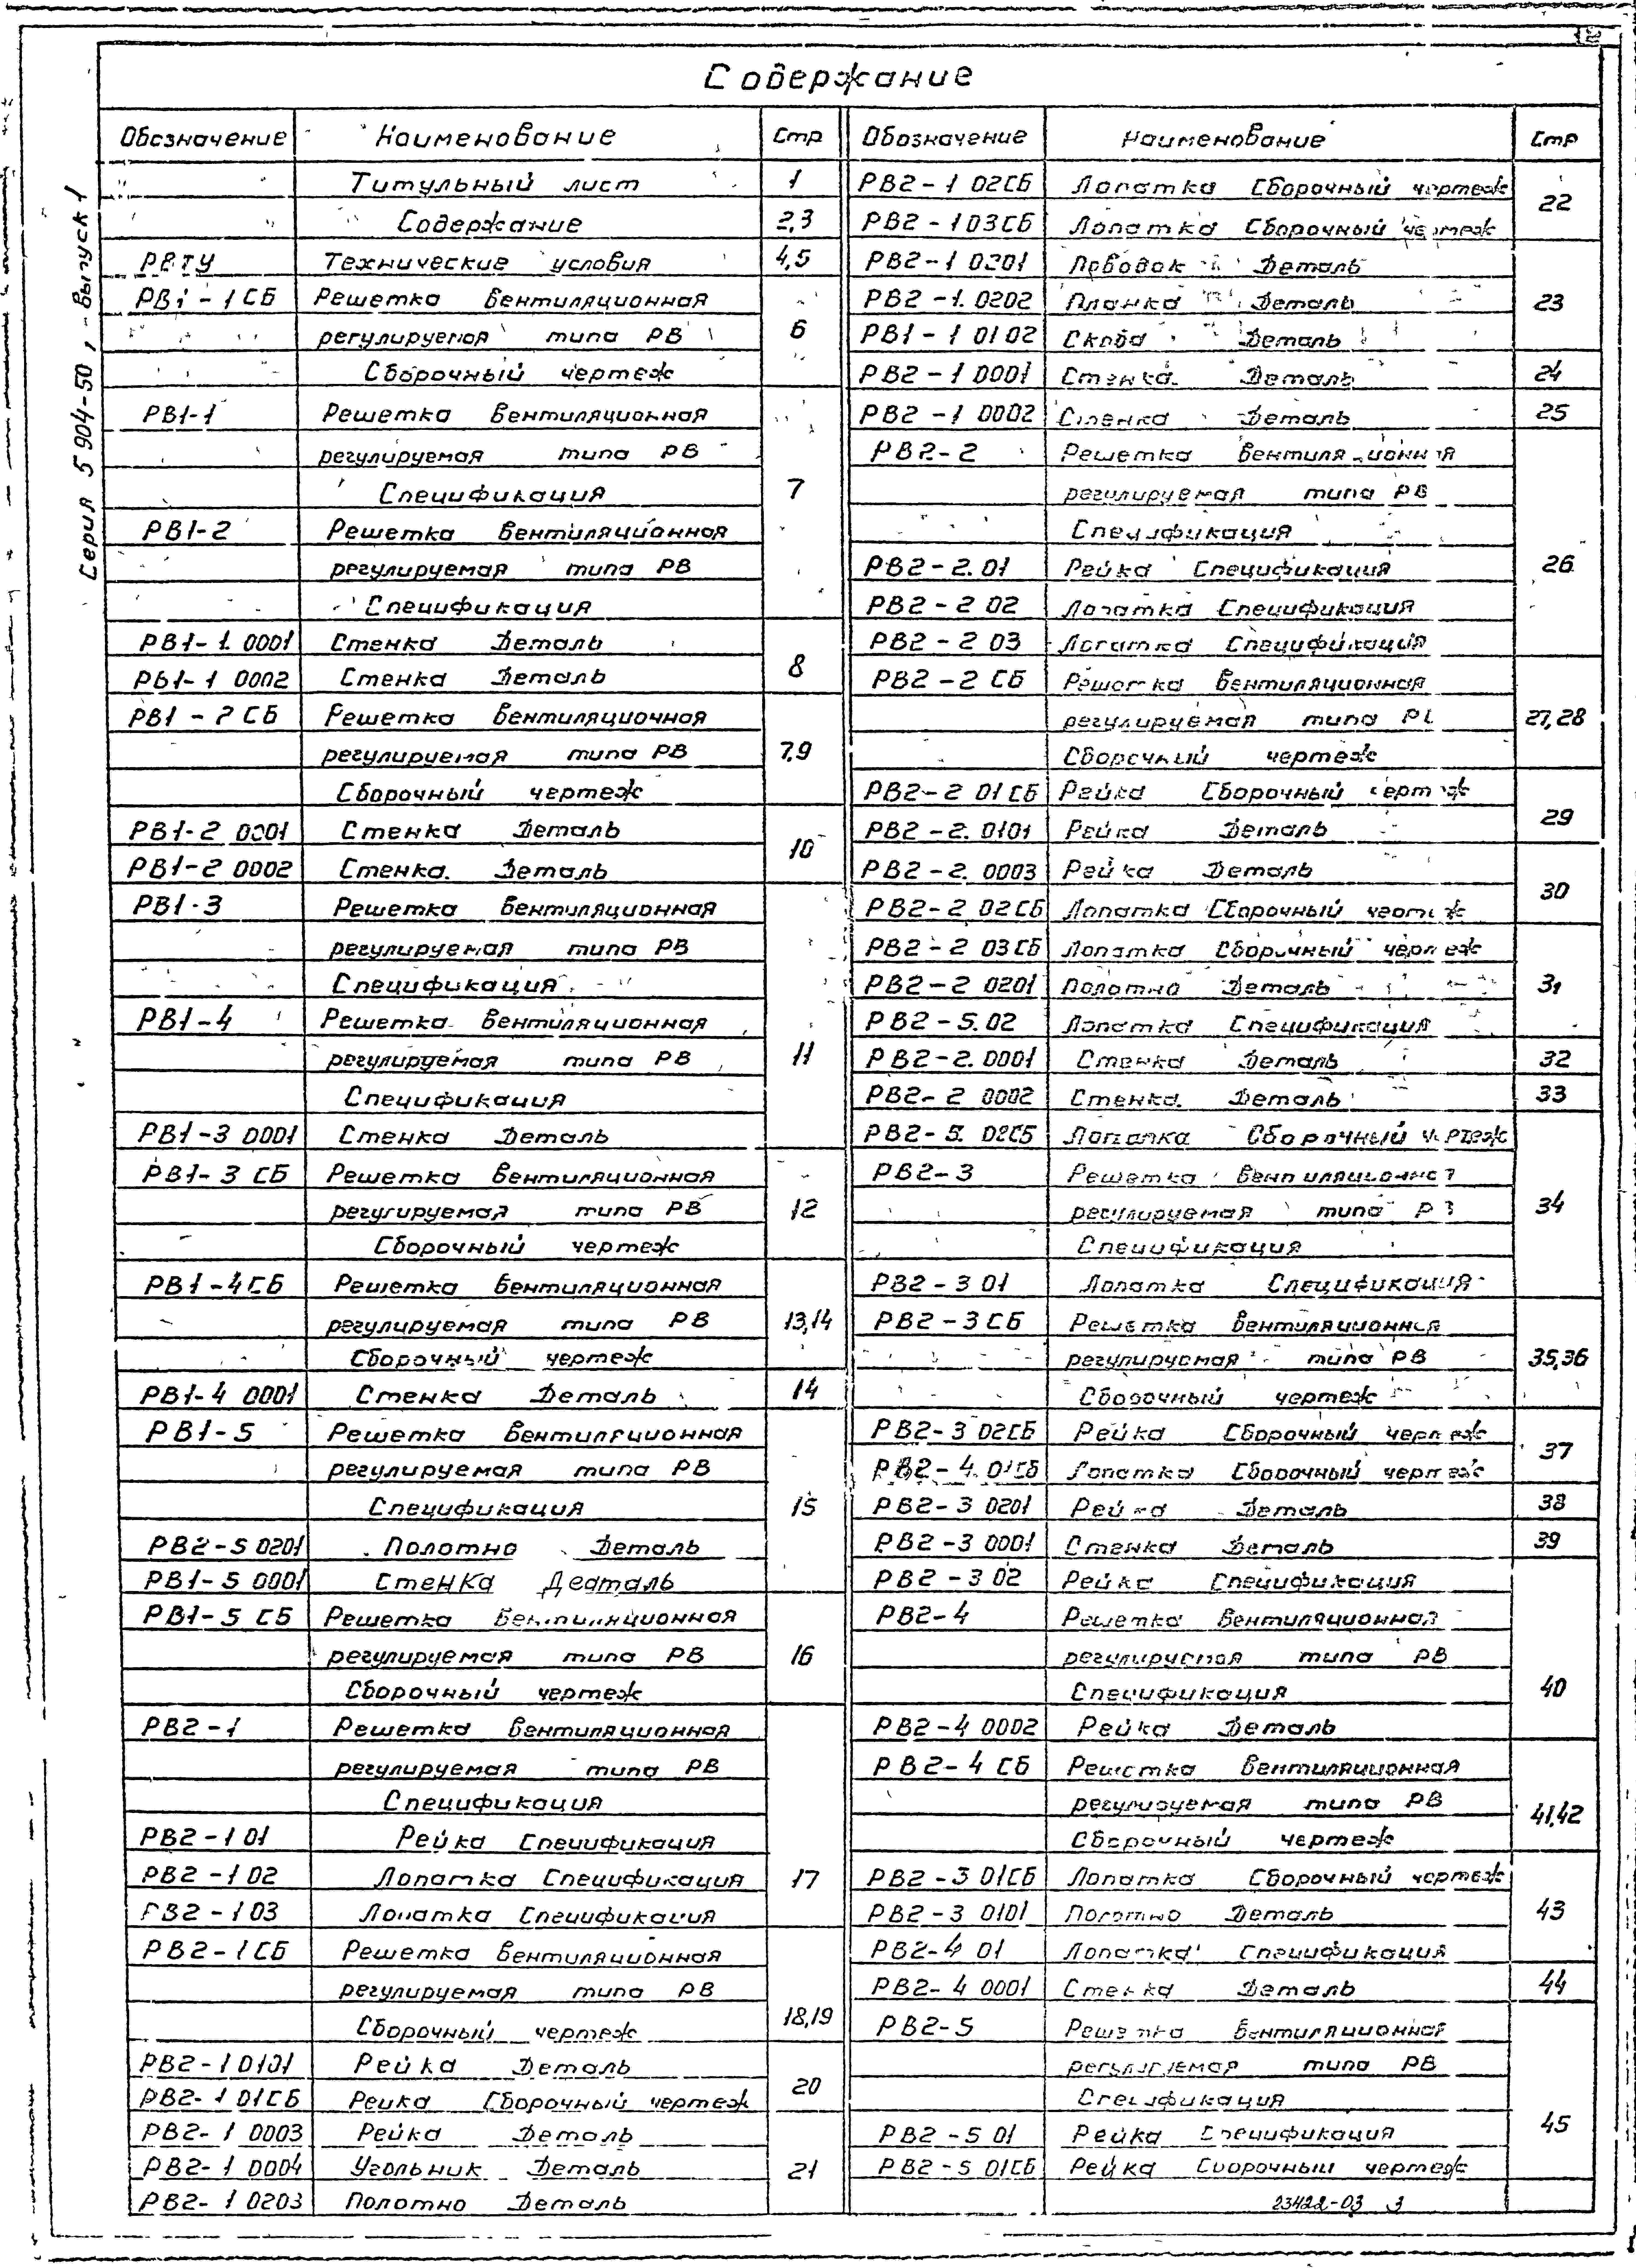 Содержание
Серия 5 904-50, - Выпуск 1
Обозначение Наименование Стр
Титульный лист 1
Содержание 2,3
РВТУ Технические условия 4,5
РВ1 - 1СБ Решетка вентиляционная
регулируемая типа РВ 6
Сборочный чертеж
РВ1-1 Решетка вентиляционная
регулируемая типа РВ
Спецификация 7
РВ1-2 Решетка вентиляционная
регулируемая типа РВ
Спецификация
РВ1-1.0001 Стенка Деталь
РВ1-1 0002 Стенка Деталь 8
РВ1 - 2 СБ Решетка вентиляционная
регулируемая типа РВ 7,9
Сборочный чертеж
РВ1-2 0001 Стенка Деталь 10
РВ1-2 0002 Стенка. Деталь
РВ1-3 Решетка вентиляционная
регулируемая типа РВ
Спецификация
РВ1-4 Решетка вентиляционная
регулируемая типа РВ 11
Спецификация
РВ1-3 0001 Стенка Деталь
РВ1-3 СБ Решетка вентиляционная
регулируемая типа РВ 12
Сборочный чертеж
РВ1-4СБ Решетка вентиляционная
регулируемая типа РВ 13,14
Сборочный чертеж
РВ1-4 0001 Стенка Деталь 14
РВ1-5 Решетка вентиляционная
регулируемая типа РВ
Спецификация 15
РВ2-5 0201 Полотно Деталь
РВ1-5 0001 Стенка Деаталь
РВ1-5 СБ Решетка вентиляционная
регулируемая типа РВ 16
Сборочный чертеж
РВ2-1 Решетка вентиляционная
регулируемая типа РВ
Спецификация
РВ2-1 01 Рейка Спецификация
РВ2-1 02 Лопатка Спецификация 17
РВ2-1 03 Лопатка Спецификация
РВ2-1СБ Решетка вентиляционная
регулируемая типа РВ
Сборочный чертеж 18,19
РВ2-1 0101 Рейка Деталь
РВ2-1 01СБ Рейка Сборочный чертеж 20
РВ2-1 0003 Рейка Деталь
РВ2-1 0004 Угольник Деталь 21
РВ2-1 0203 Полотно Деталь
Обозначение Наименование Стр
РВ2-1 02СБ Лопатка Сборочный чертеж 22
РВ2-1 03СБ Лопатка Сборочный чертеж
РВ2-1 0201 Поводок Деталь
РВ2-1.0202 Планка Деталь 23
РВ1-1 0102 Скоба Деталь
РВ2-1 0001 Стенка. Деталь 24
РВ2-1 0002 Стенка Деталь 25
РВ2-2 Решетка вентиляционная
регулируемая типа РВ
Спецификация
РВ2-2.01 Рейка Спецификация 26
РВ2-2 02 Лопатка Спецификация
РВ2-2 03 Лопатка Спецификация
РВ2-2 СБ Решетка вентиляционная
регулируемая типа РВ 27,28
Сборочный чертеж
РВ2-2 01СБ Рейка Сборочный чертеж
РВ2-2.0101 Рейка Деталь 29
РВ2-2.0003 Рейка Деталь
РВ2-2 02СБ Лопатка Сборочный чертеж 30
РВ2-2 03СБ Лопатка Сборочный чертеж
РВ2-2 0201 Полотно Деталь 31
РВ2-5.02 Лопатка Спецификация
РВ2-2.0001 Стенка Деталь 32
РВ2-2 0002 Стенка. Деталь 33
РВ2-5.02СБ Лопатка Сборочный чертеж
РВ2-3 Решетка вентиляционная
регулируемая типа РВ 34
Спецификация
РВ2-3 01 Лопатка Спецификация
РВ2-3СБ Решетка вентиляционная
регулируемая типа РВ 35,36
Сборочный чертеж
РВ2-3 02СБ Рейка Сборочный чертеж 37
РВ2-4.01СБ Лопатка Сборочный чертеж
РВ2-3 0201 Рейка Деталь 38
РВ2-3 0001 Стенка Деталь 39
РВ2-3 02 Рейка Спецификация
РВ2-4 Решетка вентиляционная
регулируемая типа РВ
Спецификация 40
РВ2-4 0002 Рейка Деталь
РВ2-4 СБ Решетка вентиляционная
регулируемая типа РВ 41,42
Сборочный чертеж
РВ2-3 01СБ Лопатка Сборочный чертеж
РВ2-3 0101 Полотно Деталь 43
РВ2-4 01 Лопатка Спецификация
РВ2-4 0001 Стенка Деталь 44
РВ2-5 Решетка вентиляционная
регулируемая типа РВ
Спецификация
РВ2-5 01 Рейка Спецификация 45
РВ2-5 01СБ Рейка Сборочный чертеж
23422-03 3